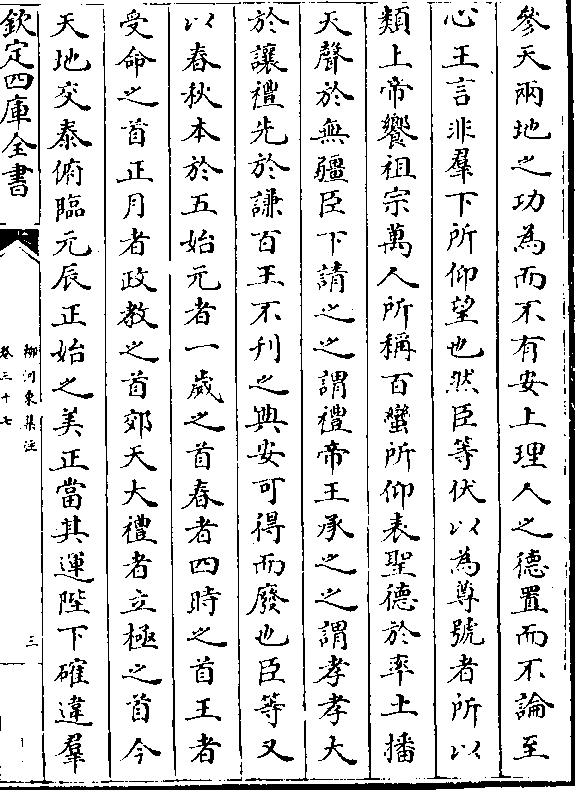 參天兩地之功為而不有安上理人之德置而不論至
心王言非羣下所仰望也然臣等伏以為尊號者所以
類上帝饗祖宗萬人所稱百蠻所仰表聖德於率土播
天聲於無疆臣下請之之謂禮帝王承之之謂孝孝大
於讓禮先於謙百王不刊之典安可得而廢也臣等又
以春秋本於五始元者一歲之首春者四時之首王者
受命之首正月者政教之首郊天大禮者立極之首今
天地交泰俯臨元辰正始之美正當其運陛下確違羣
欽定四庫全書
柳河東集注
卷三十七
三